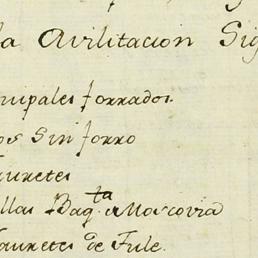 la Avilitacion Sig
ncipales forrados.
os Sin forro
aunetes
illas Baq.ta Moscovia
Taunetes de Fule.